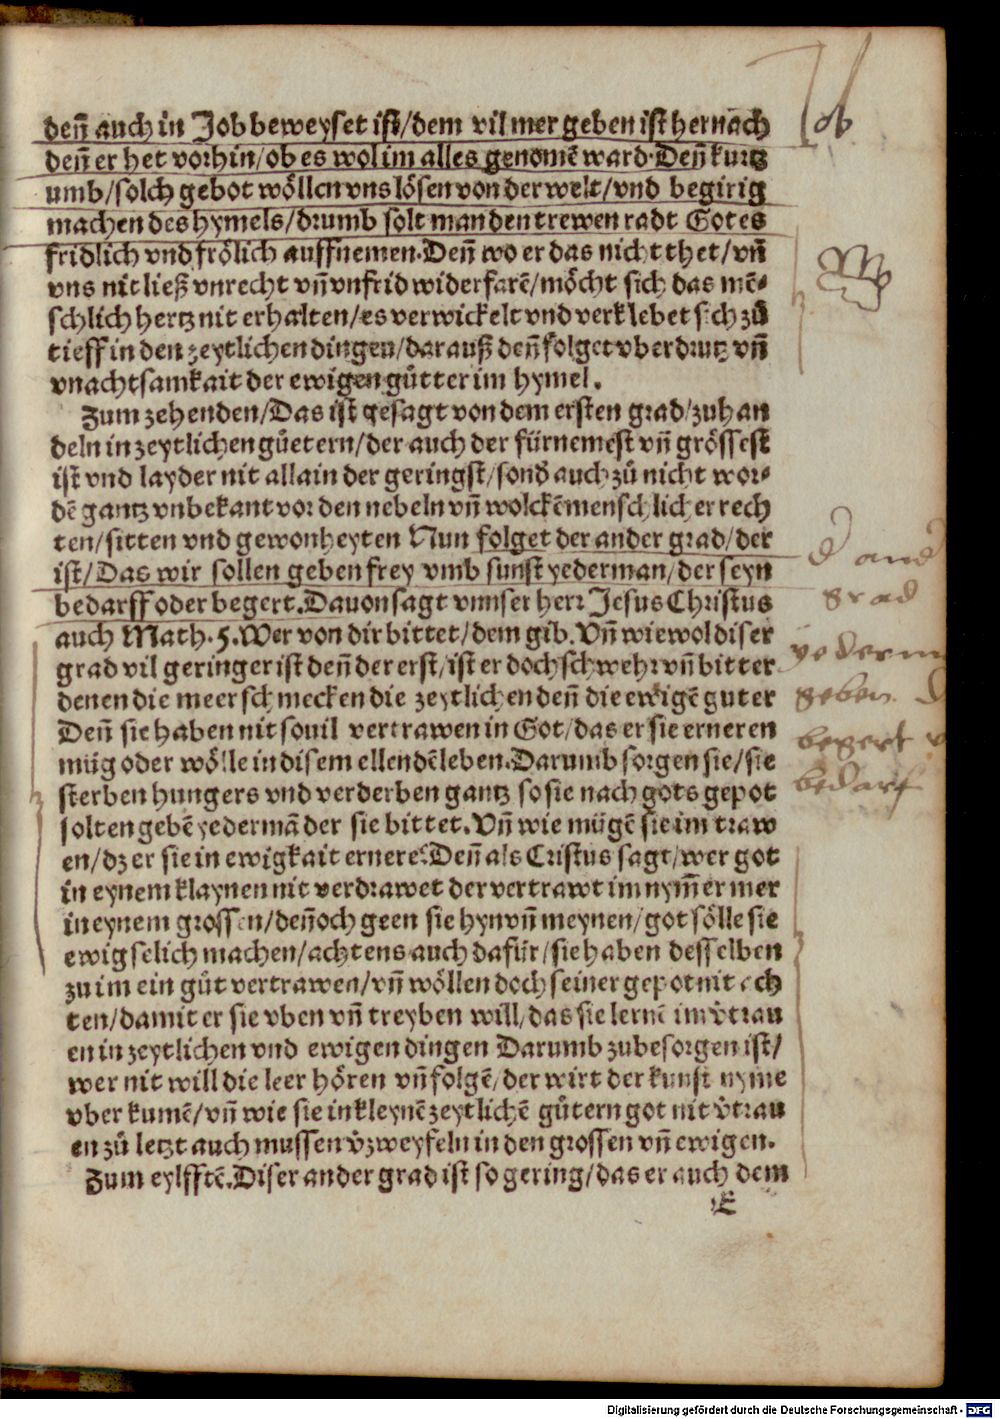 Job
denñ auch in Job beweyset ist/dem vil mer geben ist hernach
denñ er het vorhin/ob es wol im alles genomē ward. Denñ kurtz
umb/solch gebot wöllen vns lösen von der welt/vnd begirig
machen des hymels/drumb solt man den trewen radt Gotes
fridlich vnd frölich auffnemen. Denñ wo er das nicht thet/vñ
vns nit ließ vnrecht vñ vnfrid widerfarē/möcht sich das mē-
schlich hertz nit erhalten/es verwickelt vnd verklebet sich zů
tieff in den zeytlichen dingen/darauß denñ folget vberdrutz vñ
vnachtsamkait der ewigen gütter im hymel.
Zum zehenden/Das ist gesagt von dem ersten grad/zu han
deln in zeytlichen güetern/der auch der fürnemest vñ grössest
ist vnd layder nit allain der geringst/sond auch zů nicht wor-
dē gantz vnbekant vor den nebeln vñ wolckē menschlicher rech
ten/sitten vnd gewonheyten Nun folget der ander grad/der
ist/Das wir sollen geben frey vmb sunst yederman/der seyn
bedarff oder begert. Dauon sagt vnnser herr Jesus Christus
auch Math. 5. Wer von dir bittet/dem gib. Vñ wiewol diser
grad vil geringer ist denñ der erst/ist er doch schwehr vñ bitter
denen die meer schmecken die zeytlichen denñ die ewigē guter
Denñ sie haben nit souil vertrawen in Got/das er sie erneren
müg oder wölle in disem ellendē leben. Darumb sorgen sie/sie
sterben hungers vnd verderben gantz so sie nach gots gepot
solten gebē yedermā der sie bittet. Vñ wie mügē sie im traw
en/dz er sie in ewigkait ernere? Denñ als Cristus sagt/wer got
in eynem klaynen nit verdrawet der vertrawt im nym̄er mer
in eynem grossen/denñoch geen sie hyn vñ meynen/got sölle sie
ewig selich machen/achtens auch dafür/sie haben desselben
zu im ein gůt vertrawen/vñ wöllen doch seiner gepot nit ach
ten/damit er sie vben vñ treyben will/das sie lernē im v̊trau
en in zeytlichen vnd ewigen dingen Darumb zubesorgen ist/
wer nit will die leer hören vñ folgē/der wirt der kunst nyme
vber kumē/vñ wie sie in kleynē zeytlichē gütern got nit v̊trau
en zů letzt auch mussen v̊zweyfeln in den grossen vñ ewigen.
Zum eylfftē. Diser ander grad ist so gering/das er auch dem
E
grad
geben
begert
bedarf
Digitalisierung gefördert durch die Deutsche Forschungsgemeinschaft - DFG